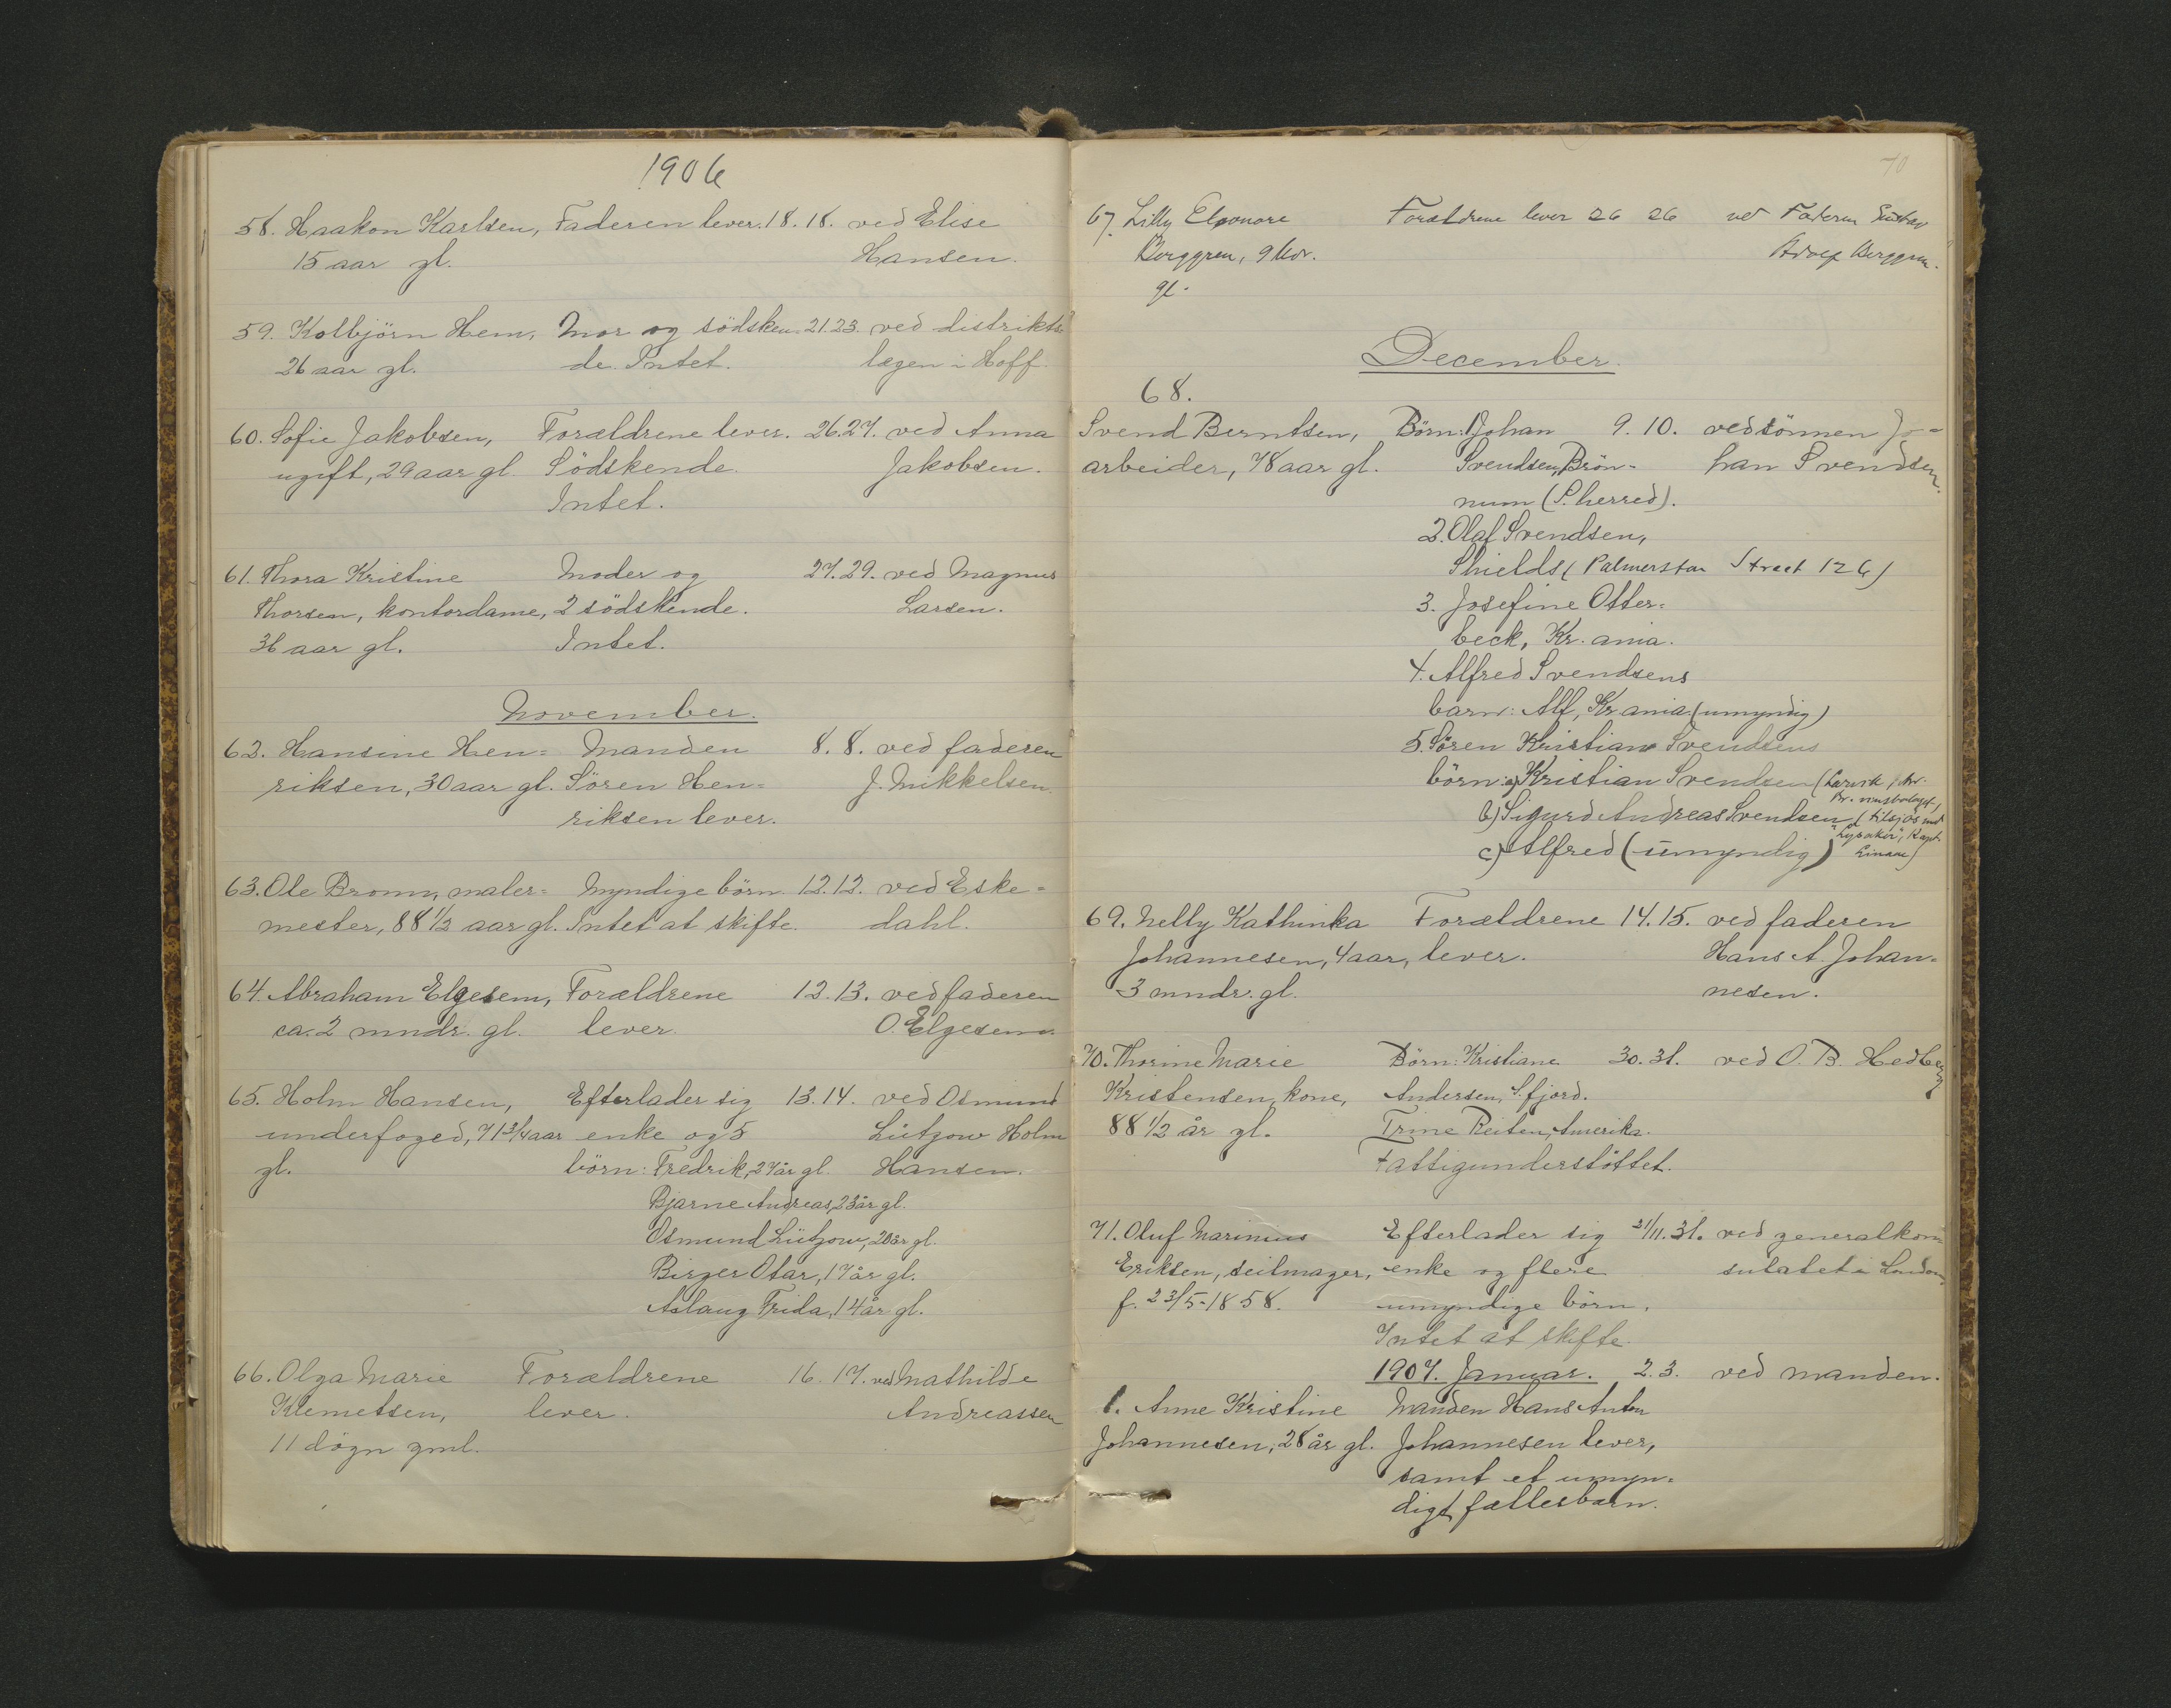 1906
58. Haakon Karlsen, Faderen lever. 18. 18. ved Elise
15 aar gl. Hansen.
59. Kolbjörn Hem, Mor og södsken- 21.23. ved distrikts-
26 aar gl. de. Intet. lægen i Hoff.
60. Sofie Jakobsen, Forældrene lever. 26.27. ved Anna
ugift, 29 aar gl. Södskende. Jakobsen.
Intet.
61. Thora Kristine Moder og 27.29. ved Magnus
Thorsen, kontordame, 2 södskende. Larsen.
36 aar gl. Intet.
November.
62. Hansine Hen= Manden 8. 8. ved faderen
riksen, 30 aar gl. Sören Hen= J. Mikkelsen.
riksen lever.
63. Ole Bromn, maler= Myndige börn. 12.12. ved Eske=
mester, 88 1/2 aar gl. Intet at skifte. dahl.
64. Abraham Elgesem, Forældrene 12.13. ved faderen
ca. 2 mndr. gl. lever. O. Elgesem.
65. Holm Hansen, Efterlader sig 13.14. ved Osmund
underfoged, 71 3/4 aar enke og 5 Lützow Holm
gl. börn: Fredrik, 27 år gl. Hansen.
Bjarne Andreas, 23 år gl.
Osmund Lützow, 20 år gl.
Birger Otar, 17 år gl.
Aslaug Frida, 14 år gl.
66. Olga Marie Forældrene 16. 17. ved Mathilde
Klemetsen, lever. Andreassen
11 dögn gml.
70
67. Lilly Eleonore Forældrene lever 26 26 ved Faderen Gustav
Berggren, 9 Mdr. Adolf Berggren.
gl.
December.
68.
Svend Berntsen, Börn: 1 Johan 9. 10. ved sönnen Jo=
arbeider, 78 aar gl. Svendsen, Brön- han Svendsen.
num (S. herred).
2. Olaf Svendsen,
Shields (Palmerston Street 126)
3. Josefine Otter=
beck, Kr. ania.
4. Alfred Svendsens
barn: Alf, Kr. ania. (umyndig)
5. Sören Kristian Svendsens
börn: a) Kristian Svendsen (Larvik,
b) Sigurd Andreas Svendsen (tilsjös med
c) Alfred (umyndig)
69. Nelly Kathinka Forældrene 14.15. ved faderen
Johannesen, 4 aar, lever. Hans A. Johan=
3 mndr. gl. nesen.
70. Thorine Marie Börn: Kristiane 30. 31. ved O. B. Hedberg
Kristensen, kone, Andersen, S. fjord.
88 1/2 år gl. Trine Reiten, Amerika.
Fattigunderstöttet.
71. Oluf Marinius Efterlader sig 21/11. 31. ved generalkon=
Eriksen, seilmager, enke og flere sulatet i London
f. 23/5-1858. umyndige börn.
Intet at skifte.
1907. Januar. 2.3. ved manden.
1. Anne Kristine Manden Hans Anton
Johannesen, 28 år gl. Johannesen lever,
samt et umyn=
digt fællesbarn.